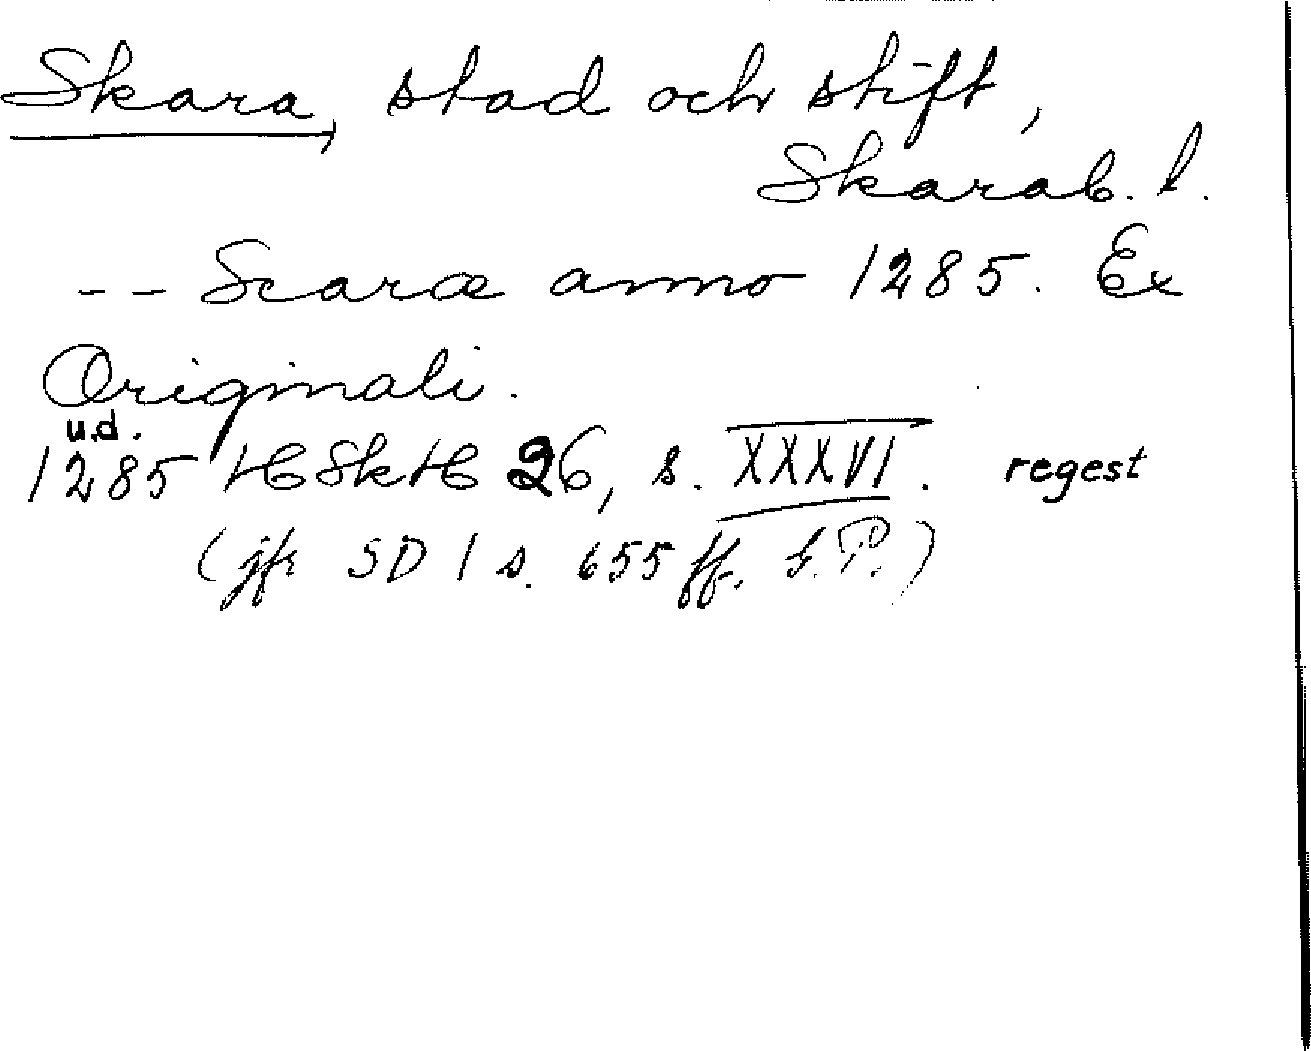 Skara, stad och stift,
Skarab. l.
-- Scaræ anno 1285. Ex
Originali.
u.d.
1285 HSkH 26, s. XXXVI. regest
(jfr SD 1 s. 655 ff. G.P.)